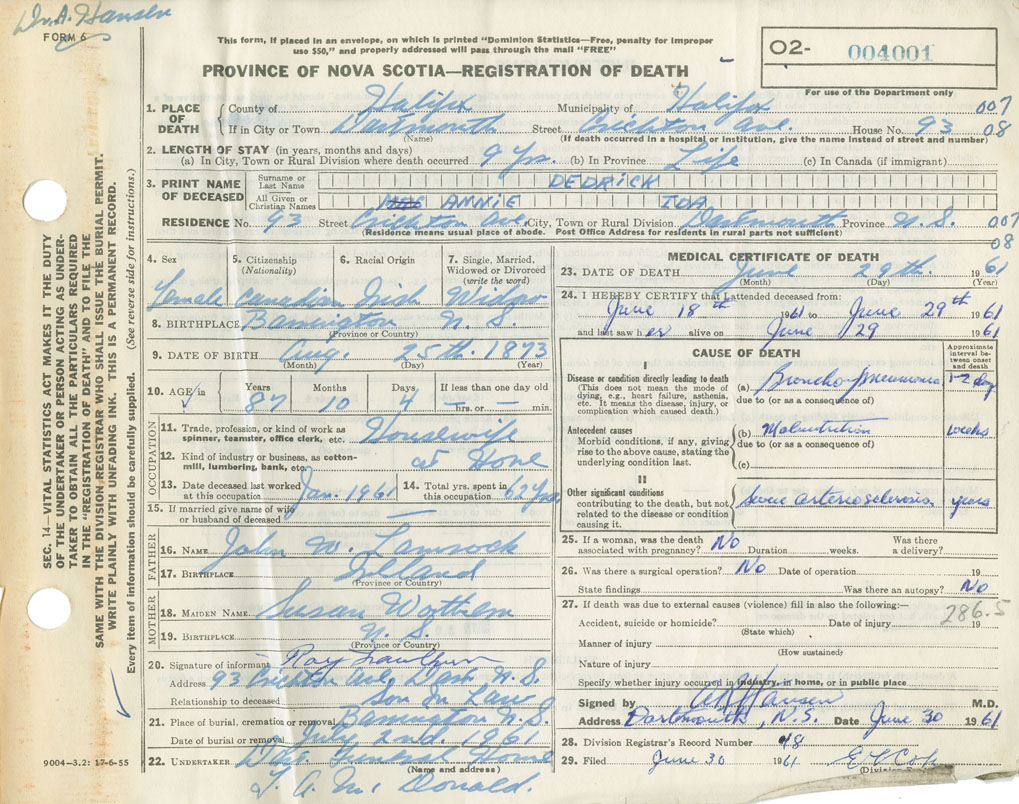 Dr. A. Hansen
FORM 6
This form, if placed in an envelope, on which is printed "Dominion Statistics—Free, penalty for improper
use $50," and properly addressed will pass through the mail "FREE"
PROVINCE OF NOVA SCOTIA—REGISTRATION OF DEATH
O2- 004001
For use of the Department only
1. PLACE OF DEATH
County of Halifax Municipality of Halifax 007
If in City or Town Dartmouth Street Crichton Ave. House No. 93 08
(Name) (If death occurred in a hospital or institution, give the name instead of street and number)
2. LENGTH OF STAY (in years, months and days)
(a) In City, Town or Rural Division where death occurred 9 Yrs. (b) In Province Life (c) In Canada (if immigrant)
3. PRINT NAME OF DECEASED
Surname or Last Name DEDRICK
All Given or Christian Names ANNIE IDA
RESIDENCE No. 93 Street Crichton Ave. City, Town or Rural Division Dartmouth Province N.S. 007
(Residence means usual place of abode. Post Office Address for residents in rural parts not sufficient) 08
4. Sex 5. Citizenship (Nationality) 6. Racial Origin 7. Single, Married, Widowed or Divorced (write the word)
Female Canadian Irish Widow
8. BIRTHPLACE Barrington N.S.
(Province or Country)
9. DATE OF BIRTH Aug. 25th. 1873
(Month) (Day) (Year)
10. AGE in Years Months Days If less than one day old
87 10 4 — hrs. or — min.
OCCUPATION
11. Trade, profession, or kind of work as spinner, teamster, office clerk, etc. Housewife
12. Kind of industry or business, as cotton-mill, lumbering, bank, etc. at Home
13. Date deceased last worked at this occupation Jan. 1961 14. Total yrs. spent in this occupation 62 Yrs.
15. If married give name of wife or husband of deceased —
FATHER
16. NAME John W.
17. BIRTHPLACE
(Province or Country)
MOTHER
18. MAIDEN NAME Susan
19. BIRTHPLACE N.S.
(Province or Country)
20. Signature of informant Roy
Address 93 Crichton Ave, Dart. N.S.
Relationship to deceased Son in Law
21. Place of burial, cremation or removal Barrington N.S.
Date of burial or removal July 2nd. 1961
22. UNDERTAKER Dart. Funeral Home
(Name and address)
L. A. Mc Donald.
MEDICAL CERTIFICATE OF DEATH
23. DATE OF DEATH June 29th. 1961
(Month) (Day) (Year)
24. I HEREBY CERTIFY that I attended deceased from:
June 18th 1961 to June 29th 1961
and last saw her alive on June 29 1961
CAUSE OF DEATH
Approximate interval between onset and death
I
Disease or condition directly leading to death (a) Broncho-pneumonia 1-2 day
(This does not mean the mode of dying, e.g., heart failure, asthenia, etc. It means the disease, injury, or complication which caused death.) due to (or as a consequence of)
Antecedent causes (b) Malnutrition weeks
Morbid conditions, if any, giving rise to the above cause, stating the underlying condition last. due to (or as a consequence of)
(c)
II
Other significant conditions contributing to the death, but not related to the disease or condition causing it. Severe arteriosclerosis years
25. If a woman, was the death associated with pregnancy? No Duration weeks. Was there a delivery?
26. Was there a surgical operation? No Date of operation 19
State findings Was there an autopsy? No
27. If death was due to external causes (violence) fill in also the following:— 286.5
Accident, suicide or homicide? (State which) Date of injury 19
Manner of injury
(How sustained)
Nature of injury
Specify whether injury occurred in industry, in home, or in public place
Signed by A Hansen M.D.
Address Dartmouth, N.S. Date June 30 1961
28. Division Registrar's Record Number 48
29. Filed June 30 1961
SEC. 14—VITAL STATISTICS ACT MAKES IT THE DUTY
OF THE UNDERTAKER OR PERSON ACTING AS UNDER-
TAKER TO OBTAIN ALL THE PARTICULARS REQUIRED
IN THE "REGISTRATION OF DEATH" AND TO FILE THE
SAME WITH THE DIVISION REGISTRAR WHO SHALL ISSUE THE BURIAL PERMIT.
WRITE PLAINLY WITH UNFADING INK. THIS IS A PERMANENT RECORD.
Every item of information should be carefully supplied. (See reverse side for instructions.)
9004-3.2: 17-6-55